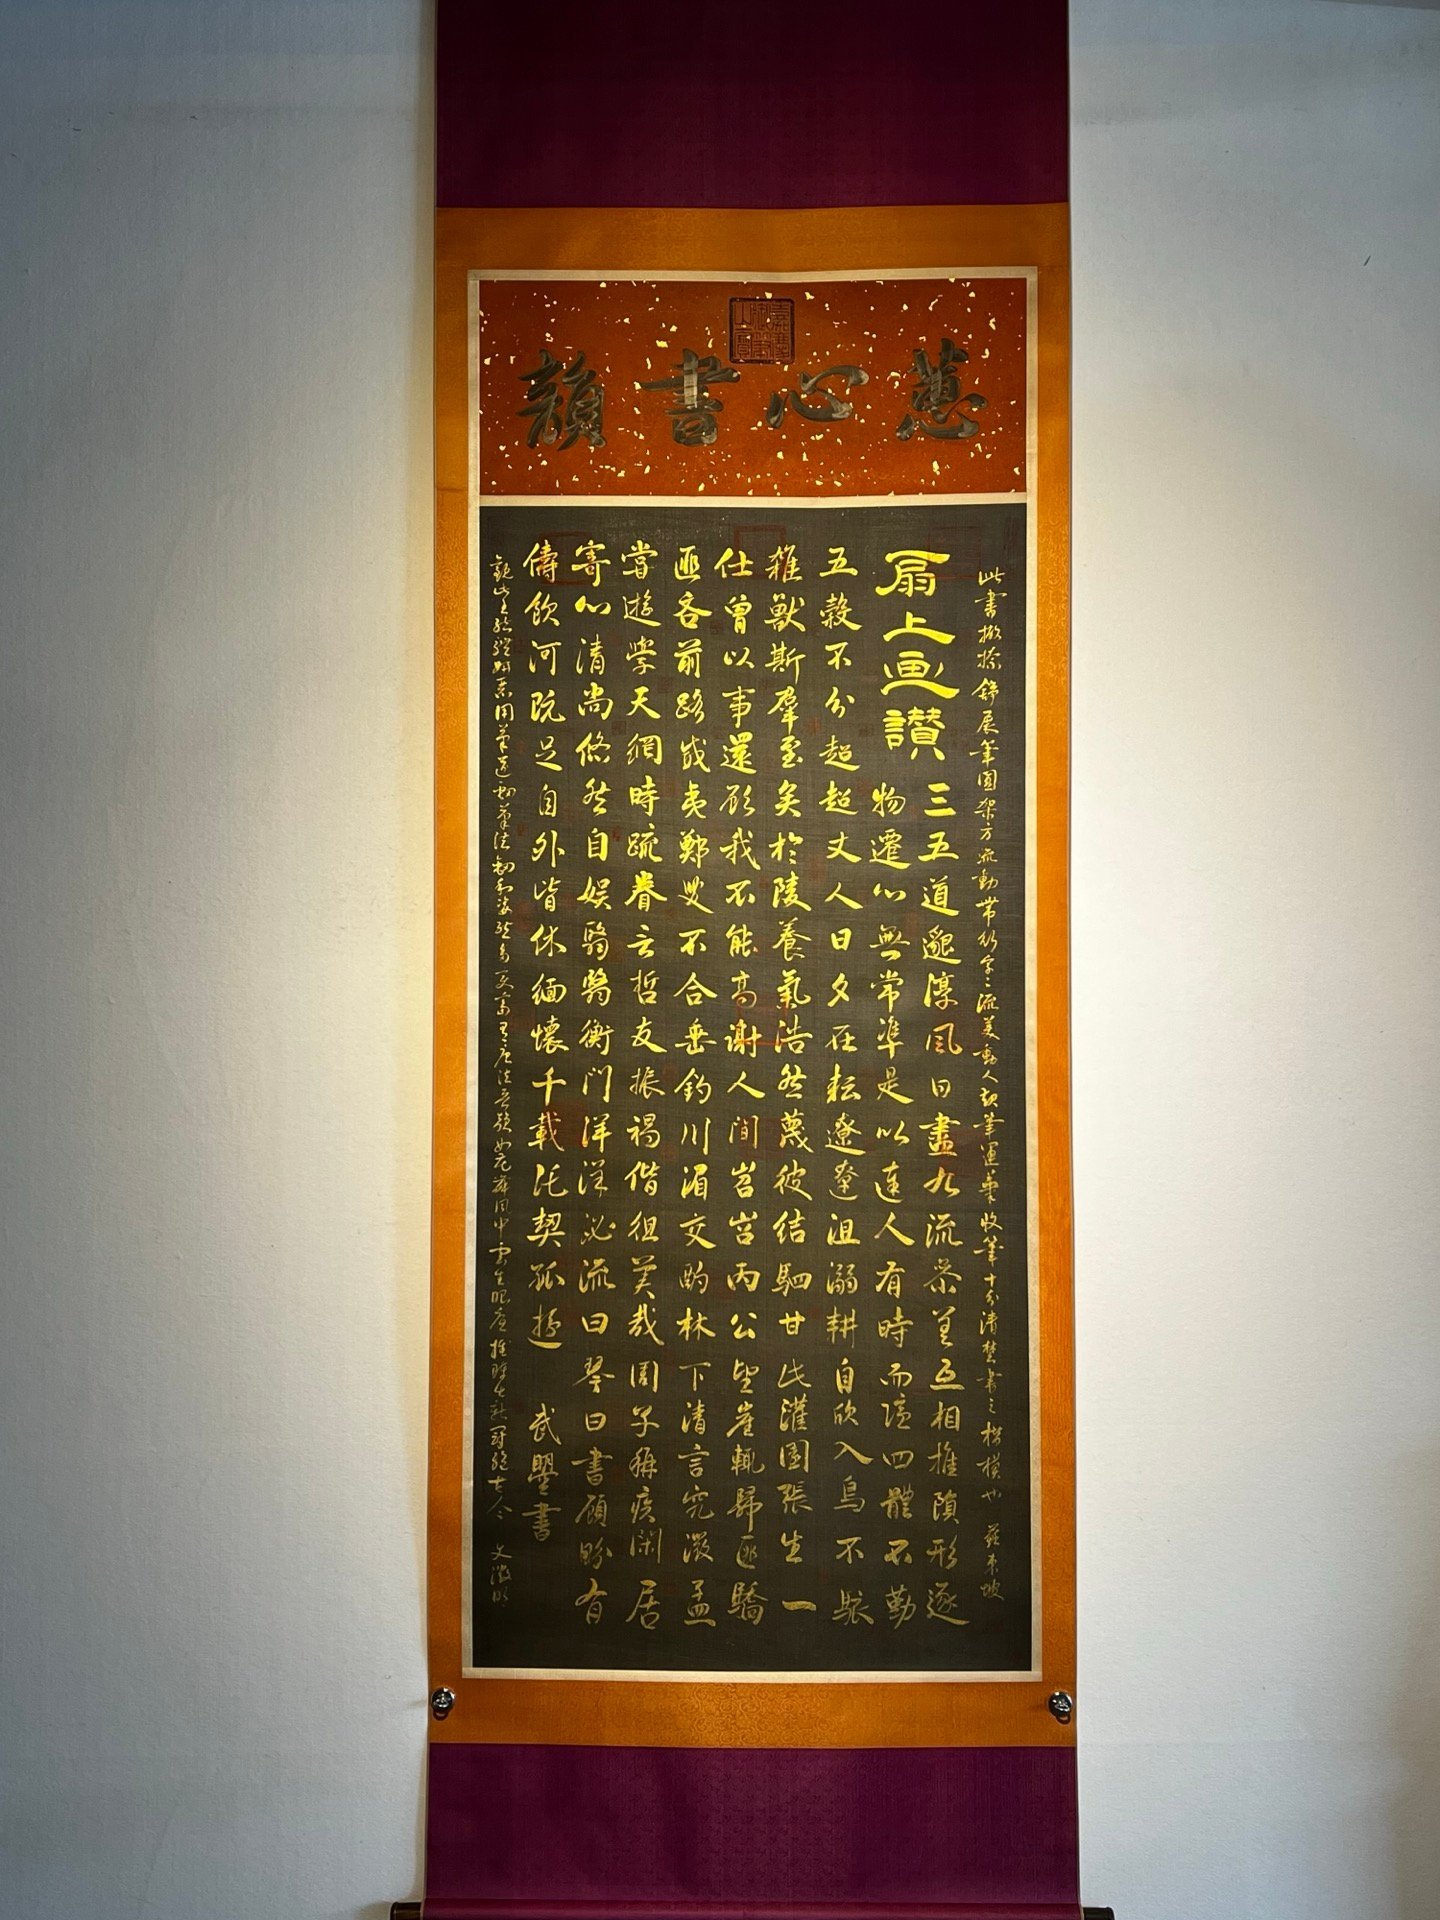 嘉慶御筆之寶
蕙心書韻
此書撇捺鋒展筆圓架方流動帶行字字流美動人起筆運筆收筆十分清楚書之楷模也 蘇東坡
扇上画讃 三五道邈淳風日盡九流參差互相推隕形逐
物遷心無常準是以達人有時而隱四體不勤
五穀不分超超丈人日夕在耘遼遼沮溺耕自欣入鳥不駭
雜獸斯羣至矣於陵養氣浩然蔑彼結駟甘此灌園張生一
仕曾以事還顧我不能高謝人間岧岧丙公望崖輒歸匪驕
匪吝前路威夷鄭叟不合垂釣川湄交酌林下清言究微孟
嘗遊學天網時疏眷言哲友振褐偕徂美哉周子稱疾閑居
寄心清尚悠然自娛翳翳衡門洋洋泌流曰琴曰書顧盼有
儔飲河既足自外皆休緬懷千載託契孤遊 武曌書
用筆遒勁筆法 冠絕古今 文徵明